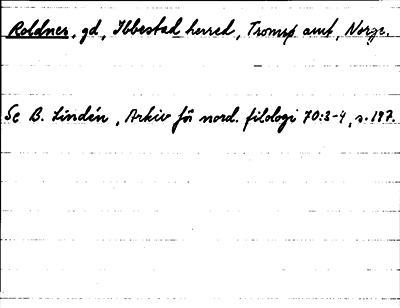 Roldnes, gd, Ibbestad herred, Tromsø amt, Norge.
Se B. Lindén, Arkiv för nord. filologi 70:3-4, s. 197.